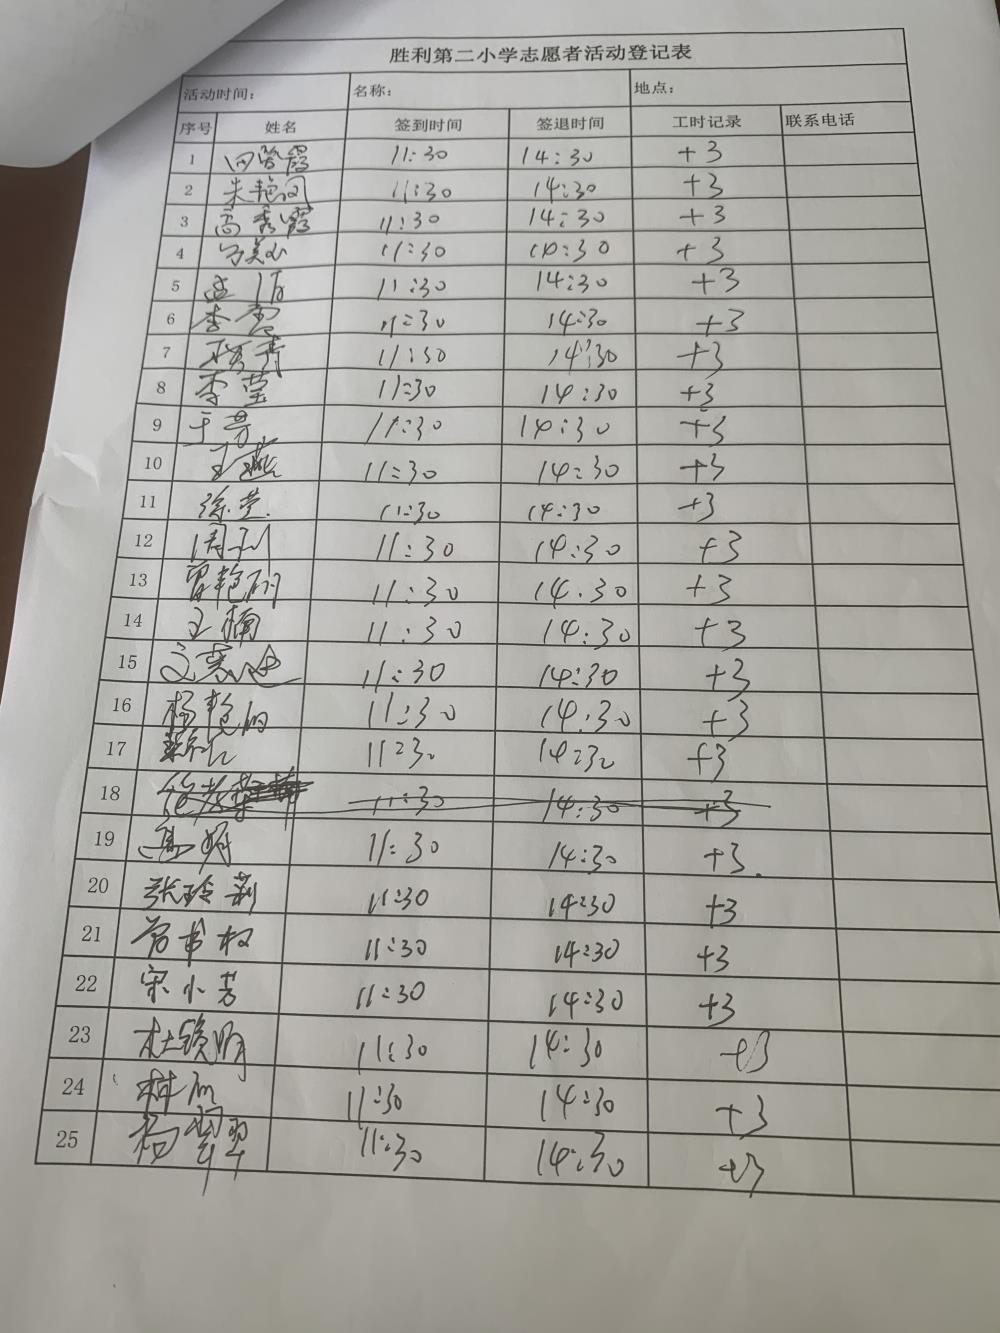 胜利第二小学志愿者活动登记表
活动时间： 名称： 地点：
序号 姓名 签到时间 签退时间 工时记录 联系电话
1 11:30 14:30 +3
2 朱艳 11:30 14:30 +3
3 高秀霞 11:30 14:30 +3
4 11:30 14:30 +3
5 11:30 14:30 +3
6 李 11:30 14:30 +3
7 杨青 11:30 14:30 +3
8 李莹 11:30 14:30 +3
9 于芳 11:30 14:30 +3
10 王燕 11:30 14:30 +3
11 徐莹 11:30 14:30 +3
12 周 11:30 14:30 +3
13 曾艳丽 11:30 14:30 +3
14 王楠 11:30 14:30 +3
15 11:30 14:30 +3
16 杨艳丽 11:30 14:30 +3
17 11:30 14:30 +3
18 11:30 14:30 +3
19 孟娟 11:30 14:30 +3
20 张玲莉 11:30 14:30 +3
21 11:30 14:30 +3
22 宋小芳 11:30 14:30 +3
23 杜晓娟 11:30 14:30 +3
24 11:30 14:30 +3
25 杨翠翠 11:30 14:30 +3